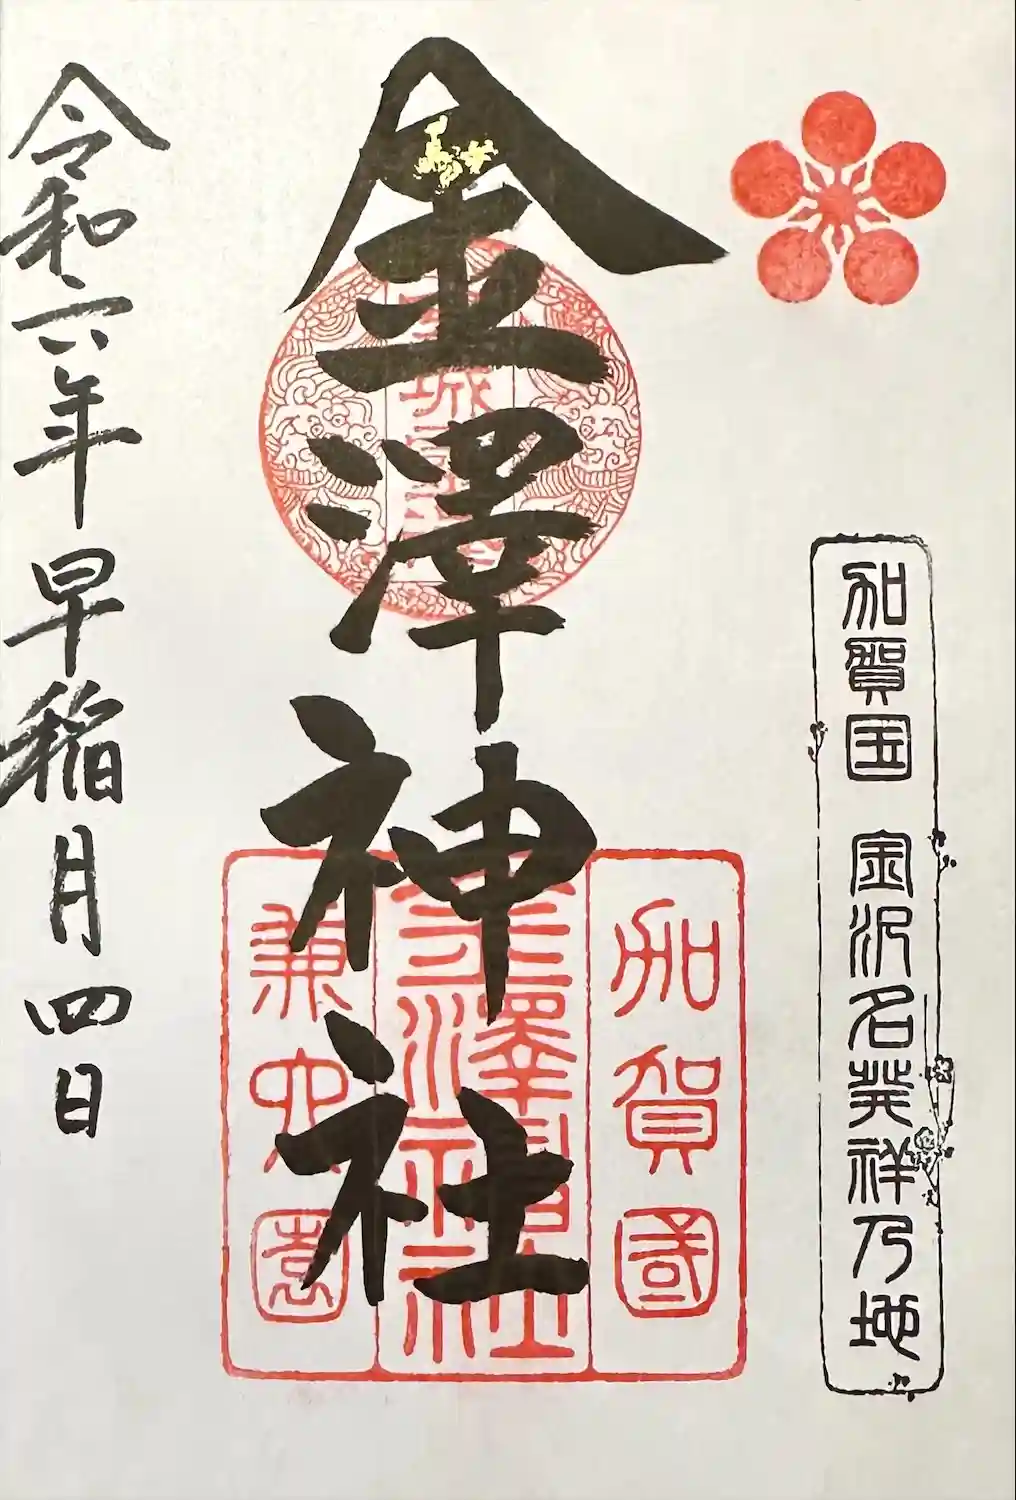 加賀国 金沢名発祥乃地
金澤神社
加賀國
金澤神社
兼六園
令和六年早稲月四日